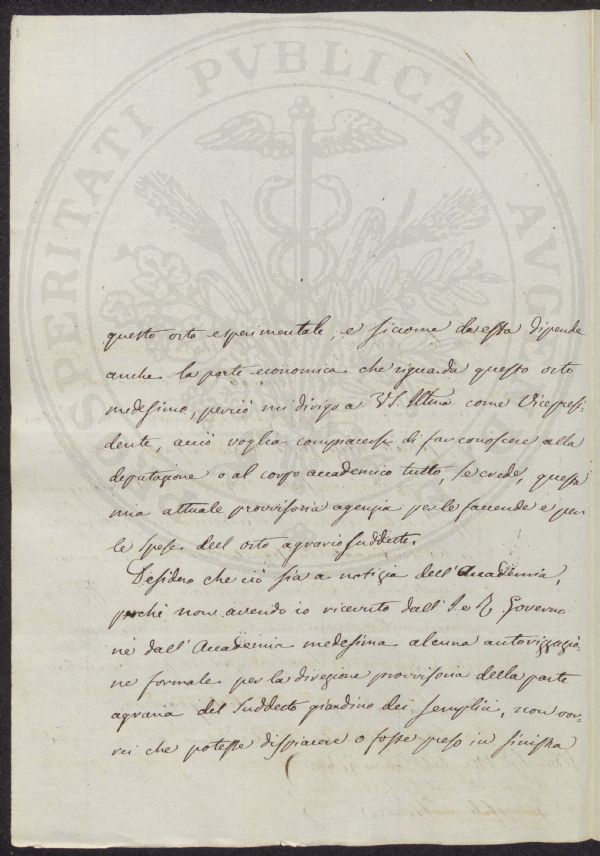 PROSPERITATI PVBLICAE AVGENDAE
questo orto esperimentale, e siccome da essa dipende
anche la parte economica che riguarda questo orto
medesimo, perciò mi dirigo a VS. Illma come Vicepresi-
dente, acciò voglia compiacersi di far conoscere alla
deputazione o al corpo accademico tutto, se crede, questa
mia attuale provvisoria agenzia per le faccende e per
le spese dell orto agrario suddetto.
Desidero che ciò sia a notizia dell'Accademia,
perché non avendo io ricevuto dall'I. e R. Governo
nè dall'Accademia medesima alcuna autorizzazio-
ne formale per la direzione provvisoria della parte
agraria del suddetto giardino dei semplici, non vor-
rei che potesse dispiacere o fosse preso in sinistra